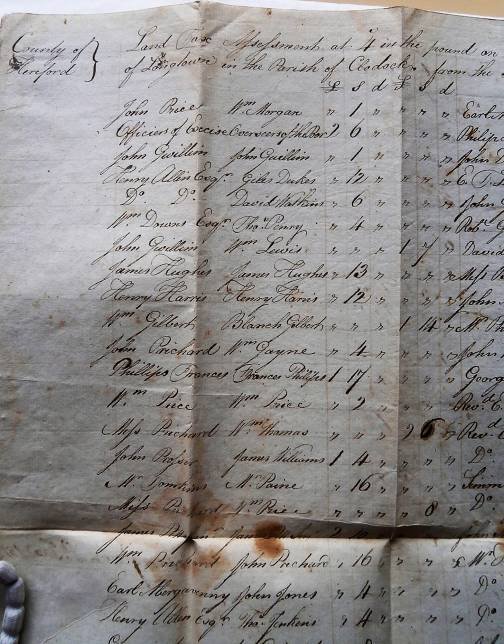 County of } Land Tax Assessment at 4/ in the pound on
Hereford of Longtown in the Parish of Clodock from the
£ s d £ s d
John Price Wm Morgan " 1 " " " " Earl
Officers of Excise Overseers of the Poor 2 6 " " " " Philip
John Gwillim John Gwillim " 1 " " " " John
Henry Allen Esqr. Giles Dukes " 12 " " " " E
Do Do David Watkins " 6 " " " " John
Wm Downs Esqr. Thos. Penry " 4 " " " " Robt.
John Gwillim Wm Lewis " " " 1 7 " David
James Hughes James Hughes " 13 " " " " Miss
Henry Harris Henry Harris " 12 " " " " John
Wm Gilbert Blanch Gilbert " " " 1 14 " Mr
John Prichard Wm Jayne " 4 " " " " John
Phillips Frances Frances Phillips 1 17 " " " " Georg
Wm Price Wm Price " 2 " " " " Revd. E
Miss Prichard Wm Thomas " " " 2 6 " Revd
John Prosser James Williams 1 4 " " " " Do
Mr Tomkins Mr Paine " 16 " " " "
Miss Wm Price " " " " 8 " Do
James
Wm John Prichard " 16 " " " " Wm
Earl Abergavenny John Jones " 4 " " " " Do
Henry Allen Esqr. Thos. Jenkins " 4 " " " " Do